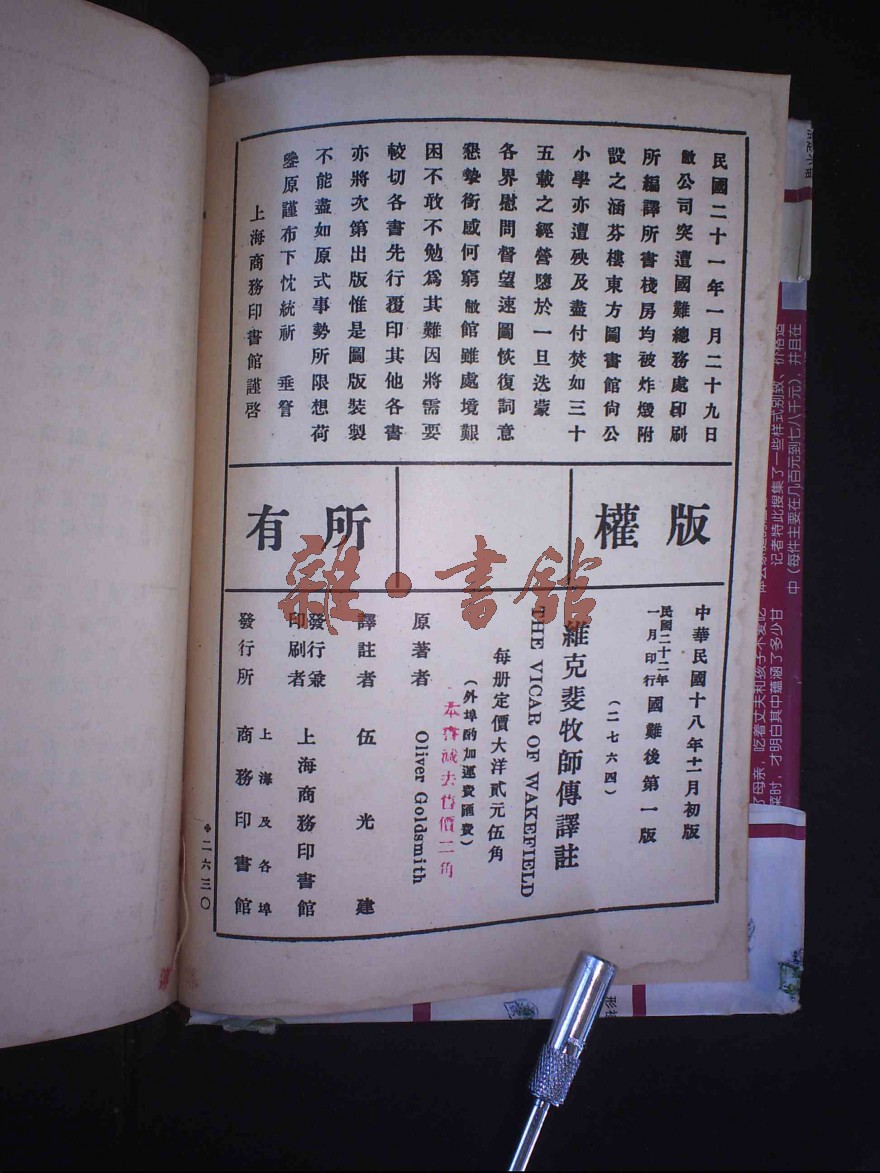 民國二十一年一月二十九日
敝公司突遭國難總務處印刷
所編譯所書棧房均被炸燬附
設之涵芬樓東方圖書館尙公
小學亦遭殃及盡付焚如三十
五載之經營隳於一旦迭蒙
各界慰問督望速圖恢復詞意
懇摯銜感何窮敝館雖處境艱
困不敢不勉爲其難因將需要
較切各書先行覆印其他各書
亦將次第出版惟是圖版裝製
不能盡如原式事勢所限想荷
鑒原謹布下忱統祈 垂詧
上海商務印書館謹啓
版權
所有
雜·書館
中華民國十八年十一月初版
民國二十二年一月印行 國難後第一版
(二七六四)
維克斐牧師傳譯註
THE VICAR OF WAKEFIELD
每册定價大洋貳元伍角
(外埠酌加運費匯費)
本書減去售價二角
原著者 Oliver Goldsmith
譯註者 伍光建
發行兼印刷者 上海商務印書館
發行所 上海及各埠 商務印書館
二六三〇
記者特此搜集了一些样式别致、价格适
中(每件主要在几百元到七八千元),并且在
才明白其中蕴涵了多少甘